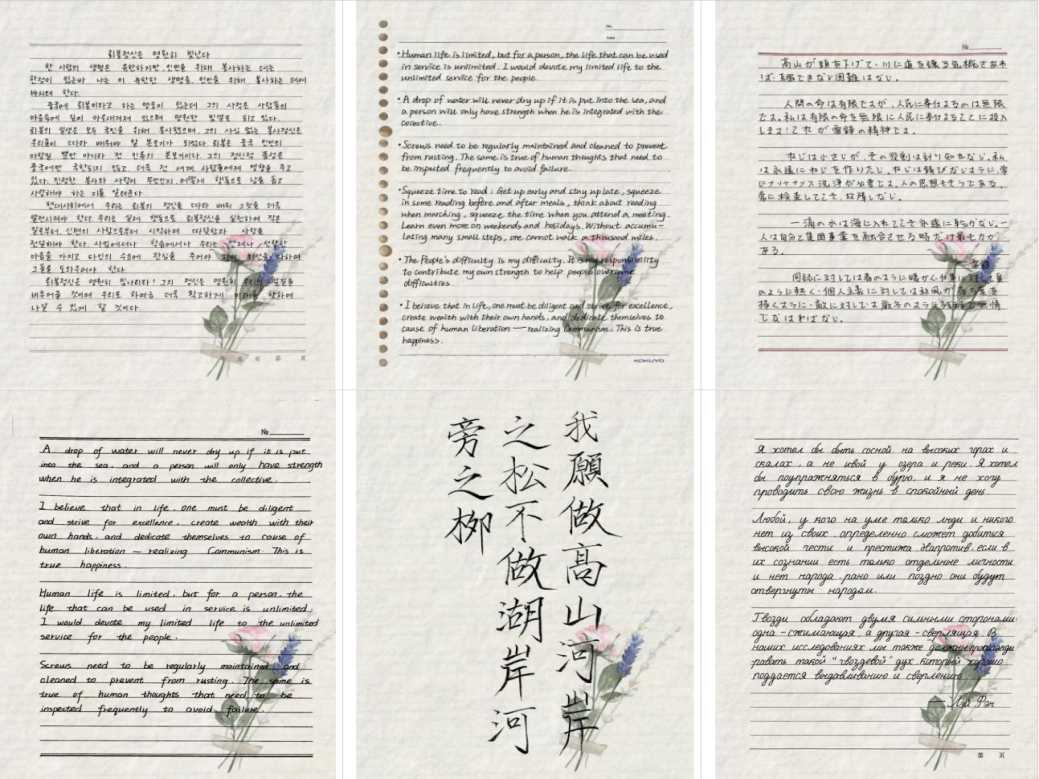 뢰봉정신은 영원히 빛난다
한 사람의 생명은 유한하지만, 인민을 위해 봉사하는 데는
한정이 없는바 나는 이 유한한 생명을, 인민을 위해 봉사하는 데에
바치려 한다.
중국에 뢰봉이라고 하는 영웅이 있는데 그의 사적은 사람들의
마음속에 깊이 아로새겨져 있으며 영원한 빛발로 되고 있다.
뢰봉의 일생은 모두 국민을 위해 봉사했으며, 그의 사심 없는 봉사정신은
우리들이 따라 배워야 할 본보기가 되였다. 뢰봉은 중국 인민의
자랑일 뿐만 아니라 전 인류의 본보기이다. 그의 정신적 품성은
중국에만 국한되지 않고 더욱 전 세계 사람들에게 영향을 주고
있다. 진정한 봉사와 사랑이 무엇인지, 어떻게 행동으로 남을 돕고
사랑해야 하는 지를 알려준다.
현대사회에서 우리는 뢰봉의 정신을 따라 배워 그것을 더욱
발전시켜야 한다. 우리는 실제 행동으로 뢰봉정신을 실천하며 작은
일로부터, 신변의 사람으로부터 시작하여 따뜻함과 사랑을
전달해야 한다. 사회에서나 학습에서나 우리는 언제나 선량한
마음을 가지고 타인의 수요에 관심을 주어야 하며 최선을 다하여
그들을 도와주어야 한다.
뢰봉정신은 영원히 빛나리라! 그의 정신은 영원히 우리의 앞길을
비추어줄 것이며 우리로 하여금 더욱 확고하게 미래를 향하여
나갈 수 있게 할 것이다.
No.
Date
• Human life is limited, but for a person, the life that can be used
in service is unlimited. I would devote my limited life to the
unlimited service for the people.
• A drop of water will never dry up if it is put into the sea, and
a person will only have strength when he is integrated with the
collective.
• Screws need to be regularly maintained and cleaned to prevent
from rusting. The same is true of human thoughts that need to
be inpected frequently to avoid failure.
• Squeeze time to read : Get up early and stay up late, squeeze
in some reading before and after meals, think about reading
when marching, squeeze the time when you attend a meeting.
Learn even more on weekends and holidays. Without accumu-
lating many small steps, one cannot walk a thousand miles.
• The People's difficulty is my difficulty. It is my responsibility
to contribute my own strength to help people overcome
difficulties.
• I believe that in life, one must be diligent and strive for excellence,
create wealth with their own hands, and dedicate themselves to
cause of human liberation — realizing Communism. This is true
happiness.
KOKUYO
No
高山が頭を下げて、川に道を譲る気概さあれ
ば、克服できない困難はない。
人間の命は有限だが、人民に奉仕するのは無限
だ。私は有限の命を無限に人民に奉仕することに投入
しよう!これが雷鋒の精神だよ。
ねじは小さいが、その役割は計り知れない。私
は永遠にねじを作りたい。ねじは錆びないように常
にメンテナンス洗浄が必要だよ、人の思想もそうである、
常に検査してこそ、故障しない。
一滴の水は海に入れてこそ永遠に乾かない。一
人は自分と集団事業を融合させる時だけ最も力が
ある。
同志に対しては春のように暖かく、仕事に対しては夏
のように熱く、個人主義に対しては秋風が落ち葉を
掃くように、敵に対しては厳冬のように残酷で無情
でなければなし。
No
A drop of water will never dry up if it is put
into the sea, and a person will only have strength
when he is integrated with the collective.
I believe that in life, one must be diligent
and strive for excellence, create wealth with their
own hands, and dedicate themselves to cause of
human liberation — realizing Communism. This is
true happiness.
Human life is limited, but for a person, the
life that can be used in service is unlimited.
I would devote my limited life to the unlimited
service for the people.
Screws need to be regularly maintained and
cleaned to prevent from rusting. The same is
true of human thoughts that need to be
inpected frequently to avoid failure.
我願做高山河岸
之松不做湖岸河
旁之柳
Я хотел бы быть сосной на высоких горах и
скалах, а не ивой у озера и реки. Я хотел
бы поупражняться в бурю, и я не хочу
проводить свою жизнь в спокойный день.
Любой, у кого на уме только люди и никого
нет из своих, определенно сможет добиться
высокой чести и престижа. Напротив, если в
их сознании есть только отдельные личности
и нет народа, рано или поздно они будут
отвергнуты народом.
Гвозди обладают двумя сильными сторонами:
одна - сжимающая, а другая - сверлящая. В
наших исследованиях мы также должны пропаганди-
ровать такой "гвоздевой" дух, который хорошо
поддается выдавливанию и сверлению.
— Лэй Фэн
第 页